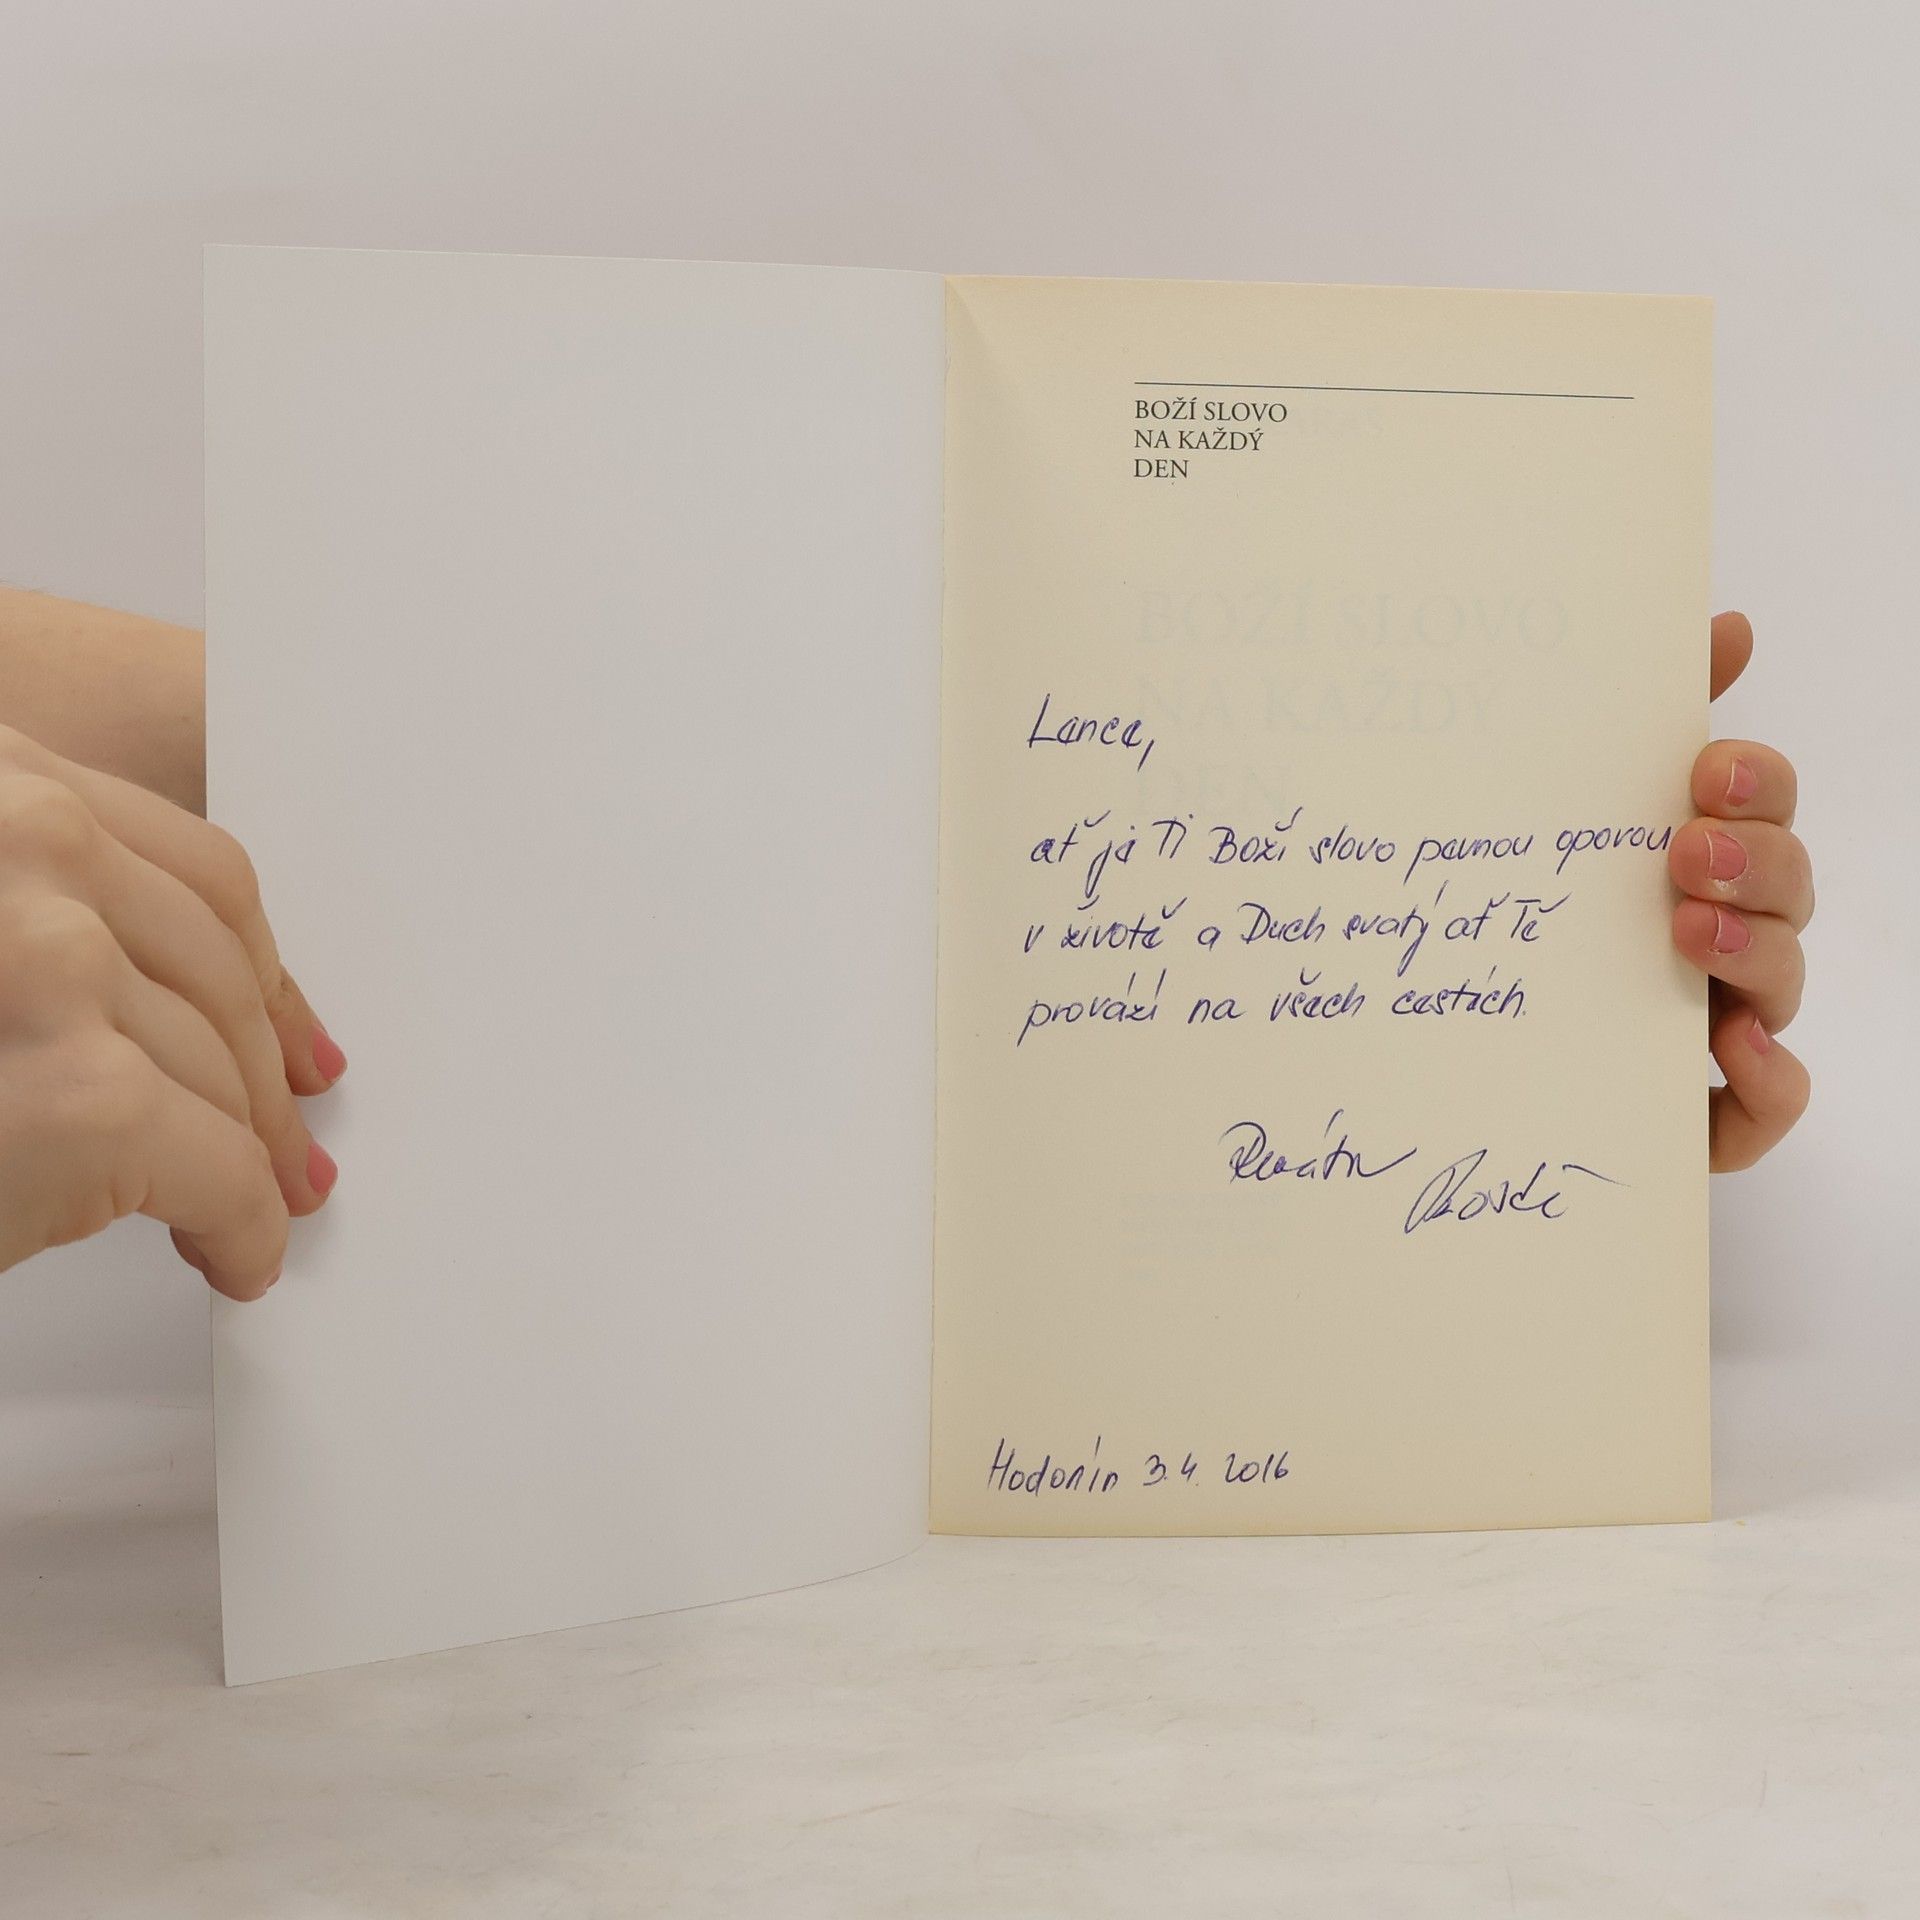 BOŽÍ SLOVO
NA KAŽDÝ
DEN
BOŽÍ SLOVO
NA KAŽDÝ
DEN
Lence,
ať je Ti Boží slovo pevnou oporou
v životě a Duch svatý ať Tě
provází na všech cestách.
Renáta
Hodonín 3.4. 2016